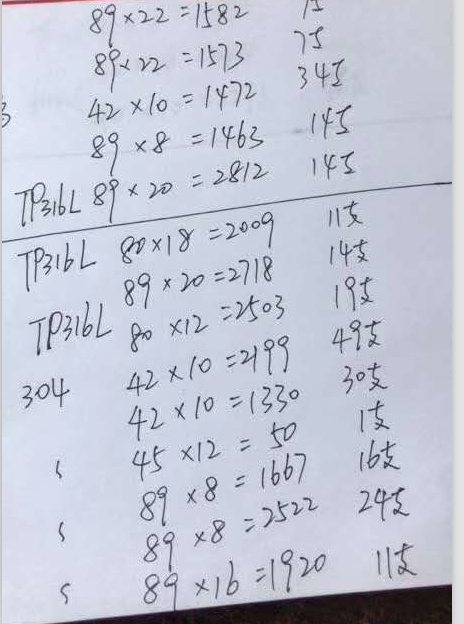 89×22=1582
89×22=1573 7支
42×10=1472 34支
89×8=1463 14支
TP316L 89×20=2812 14支
TP316L 80×18=2009 11支
89×20=2718 14支
TP316L 80×12=2503 19支
42×10=2199 49支
304 42×10=1330 30支
45×12=50 1支
89×8=1667 16支
89×8=2522 24支
89×16=1920 11支